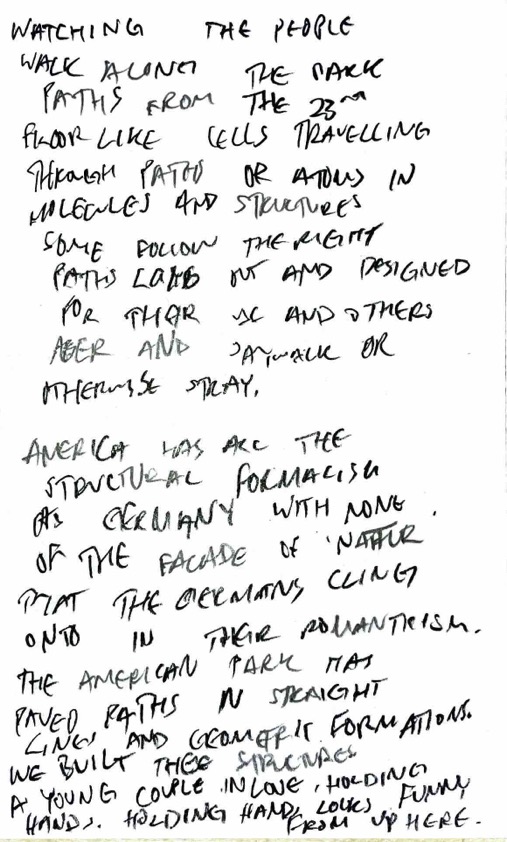 WATCHING THE PEOPLE
WALK ALONG THE PARK
PATHS FROM THE 23RD
FLOOR LIKE CELLS TRAVELLING
THROUGH PATHS OR ATOMS IN
MOLECULES AND STRUCTURES
SOME FOLLOW THE RIGHT
PATHS LAID OUT AND DESIGNED
FOR THEIR USE AND OTHERS
AND JAYWALK OR
OTHERWISE STRAY.
AMERICA HAS ALL THE
STRUCTURAL FORMALISM
AS GERMANY WITH NONE
OF THE FACADE OF 'NATUR
THAT THE GERMANS CLING
ONTO IN THEIR ROMANTICISM.
THE AMERICAN PARK HAS
PAVED PATHS IN STRAIGHT
LINES AND GEOMETRIC FORMATIONS.
WE BUILT THESE STRUCTURES
A YOUNG COUPLE IN LOVE, HOLDING
HANDS. HOLDING HANDS LOOKS FUNNY
FROM UP HERE.